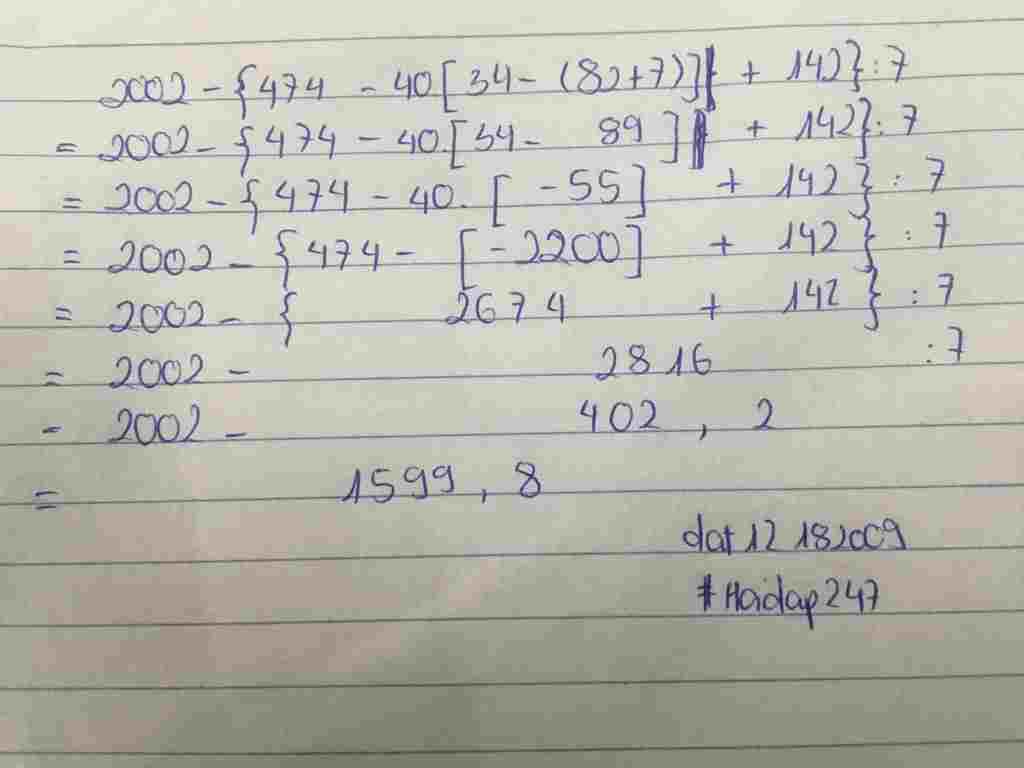 2002 - {474 - 40[34 - (82+7)] + 142} : 7
= 2002 - {474 - 40.[34 - 89] + 142} : 7
= 2002 - {474 - 40. [-55] + 142} : 7
= 2002 - {474 - [-2200] + 142} : 7
= 2002 - { 2674 + 142} : 7
= 2002 - 2816 : 7
- 2002 - 402, 2
= 1599, 8
dat 12 182009
#Hoidap247